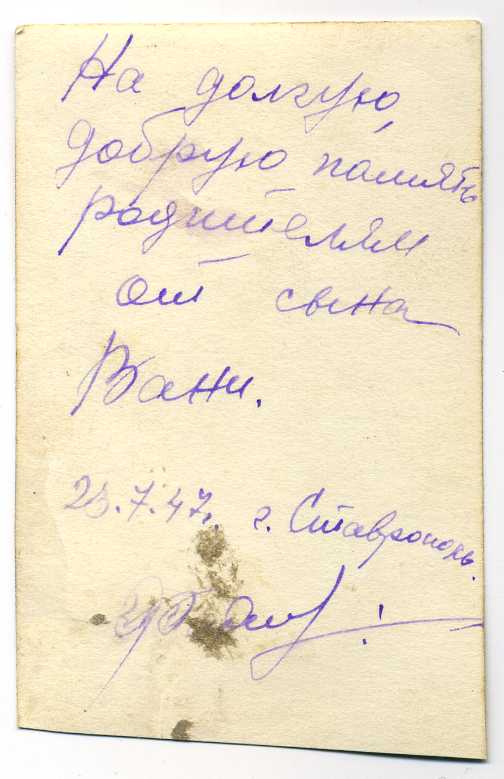 На долгую,
добрую память
родителям
от сына
Вани.
23.7.47. г. Ставрополь.